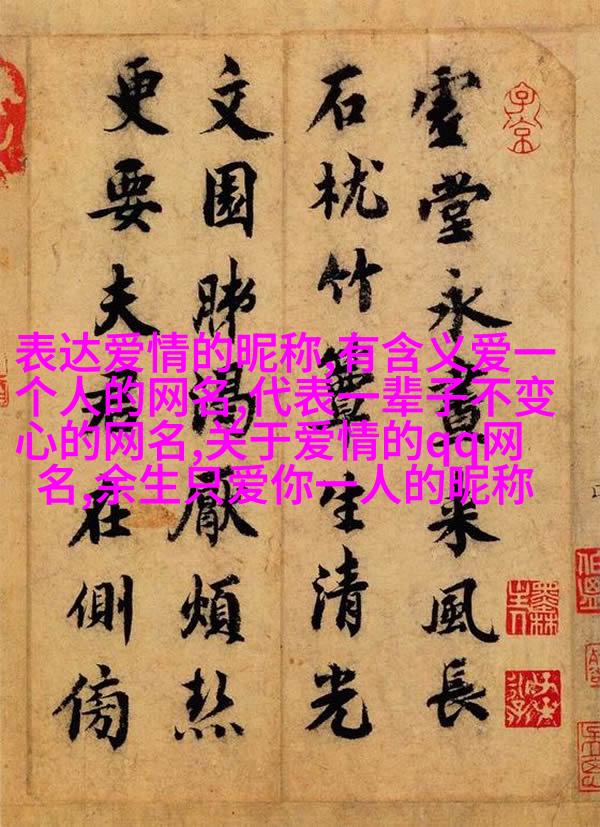 虛堂永晝来風長
石枕竹簟生清光
文園肺渴厭煩熱
更要夫君在側傍
表达爱情的昵称,有含义爱一
个人的网名,代表一辈子不变
心的网名,关于爱情的qq网
名,余生只爱你一人的昵称